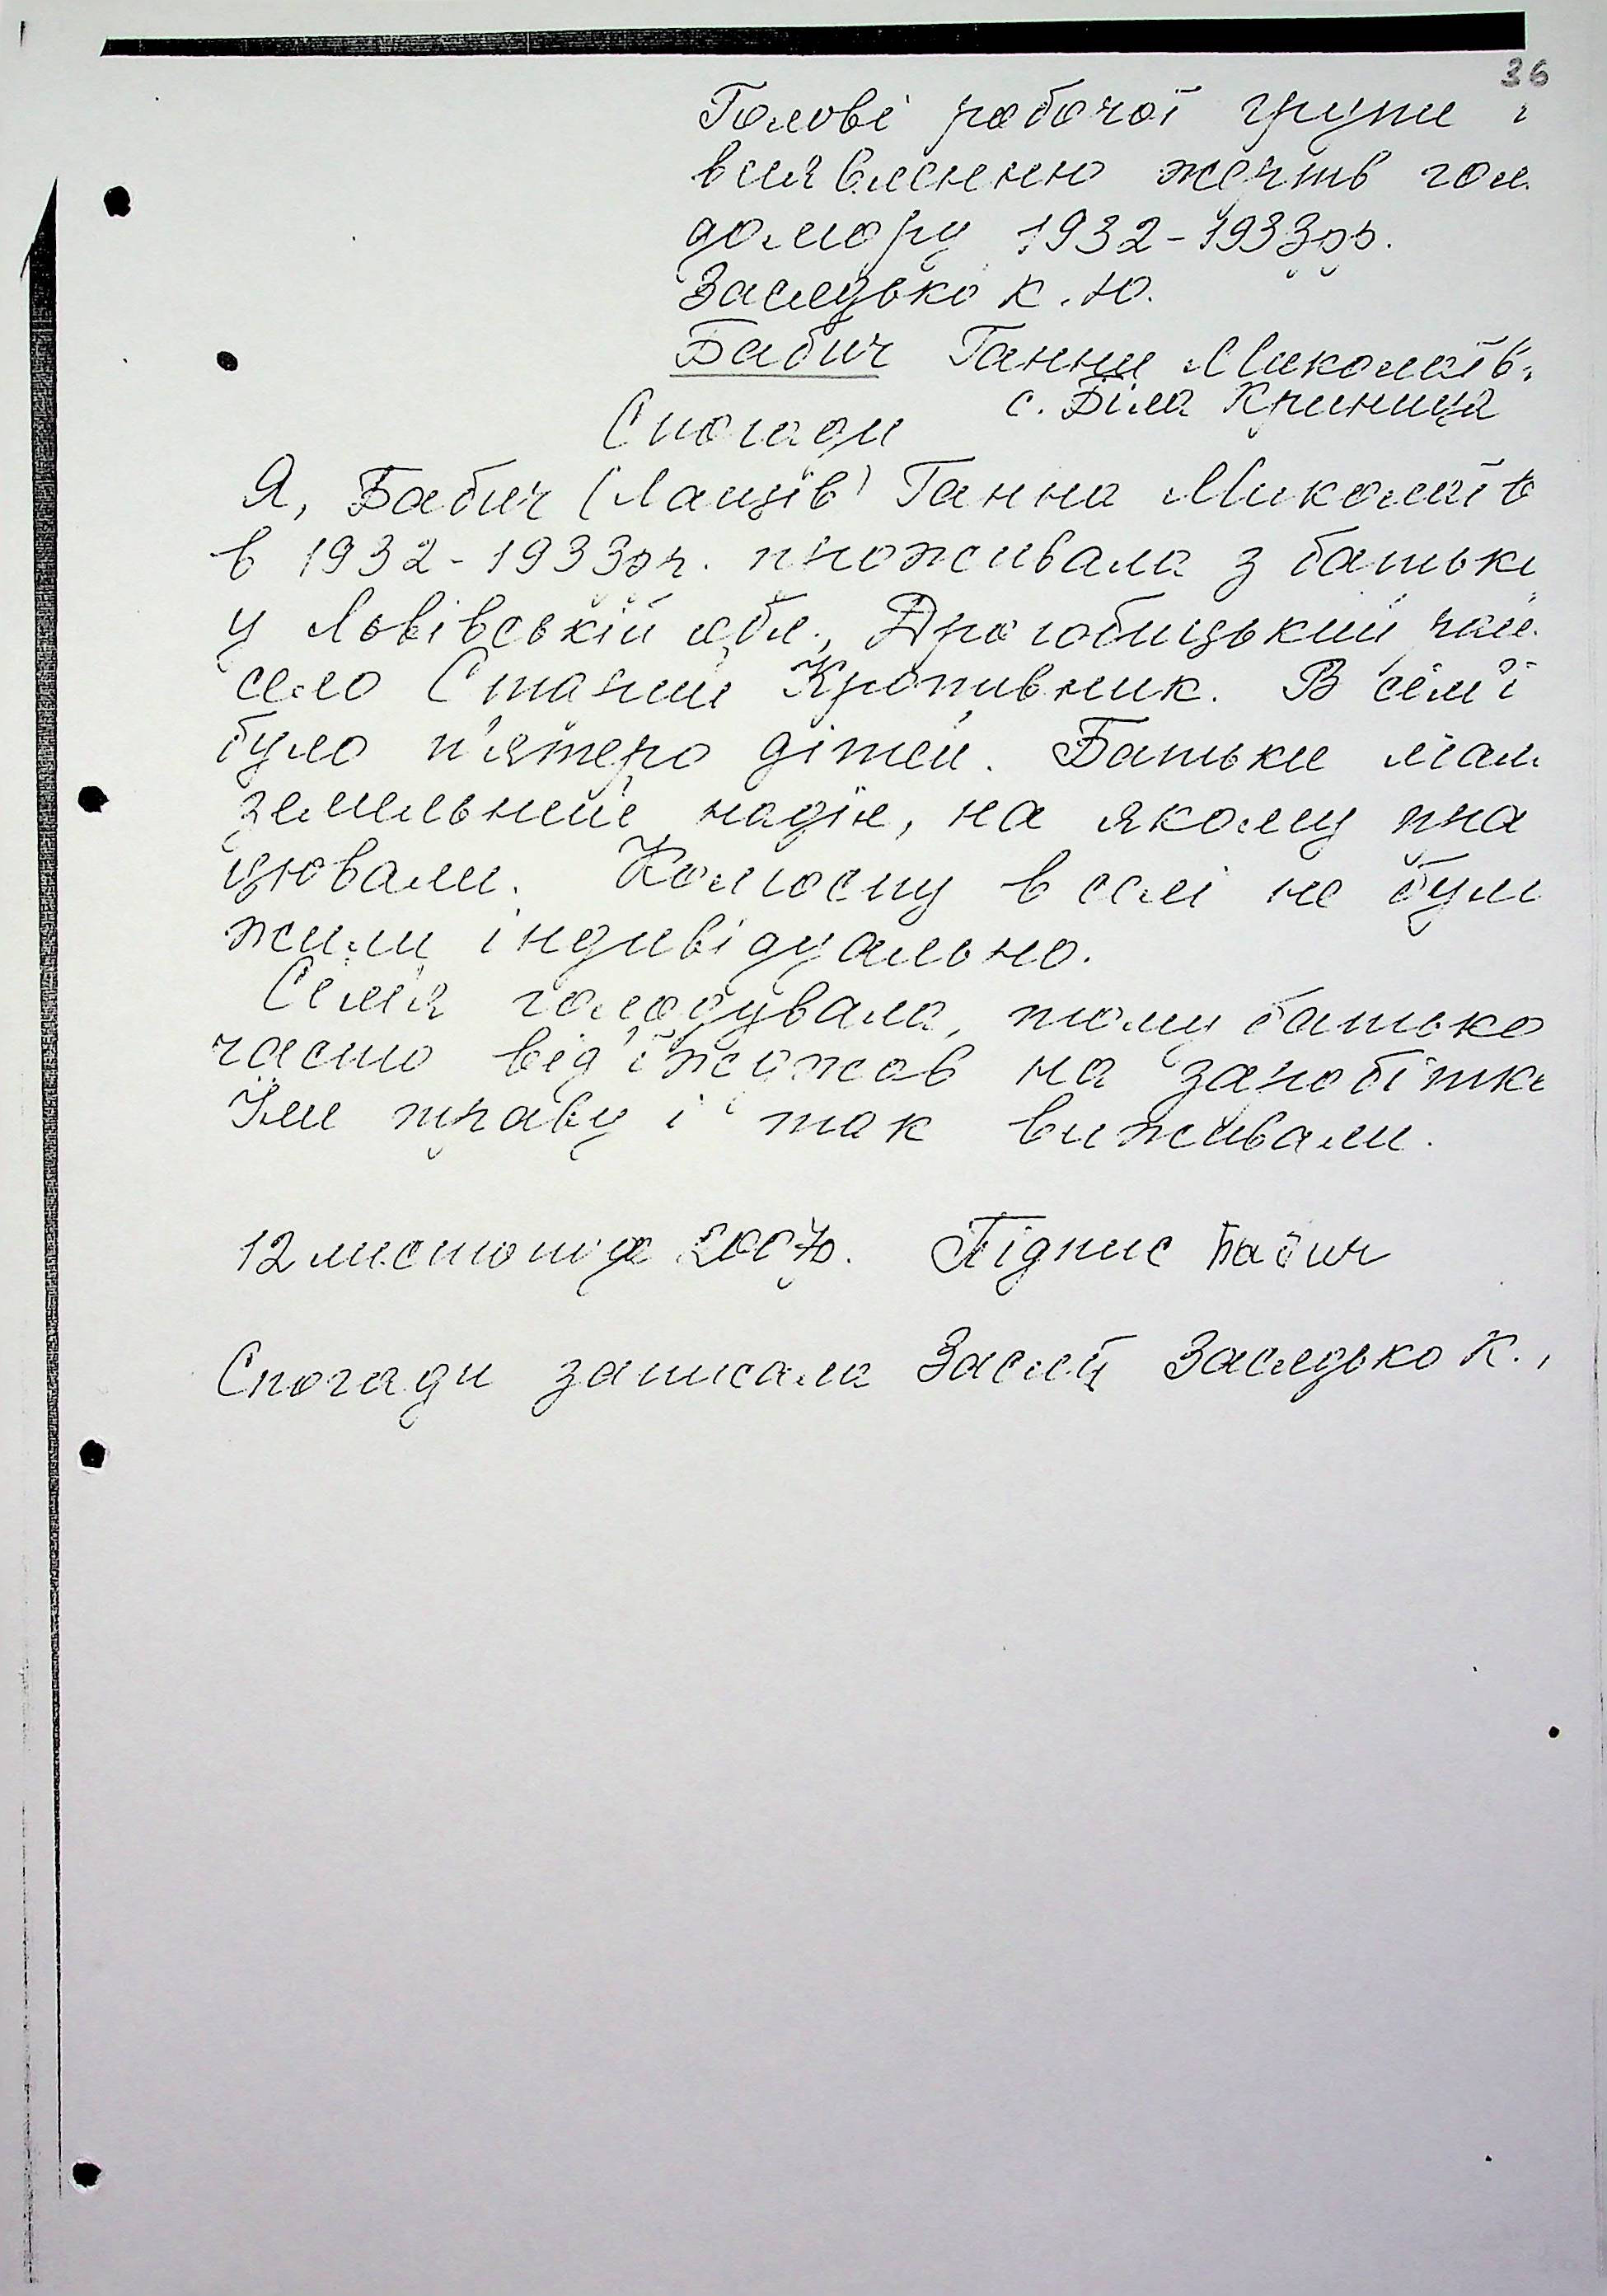 36
Голові робочої групи
виявленню жертв гол
домору 1932-1933рр.
Заслядько К.Ю.
Бабич Ганни Миколаїв
с. Біла Криниця
Спогади
Я, Бабич (Лаців) Ганна Миколаїв
в 1932-1933рр. проживала з батьк
у Львівській обл., Дрогобицький рай.
село Старий Кропивник. В сім'ї
було п'ятеро дітей. Батьки мал
земельний наділ, на якому пра
цювали. Колгоспу в селі не бул
жили індивідуально.
Сім'я голодувала, тому батько
часто від'їжджав на заробітк
Їли траву і так виживали.
12 листопада 2007р. Підпис Бабич
Спогади записала Заслядько К.,